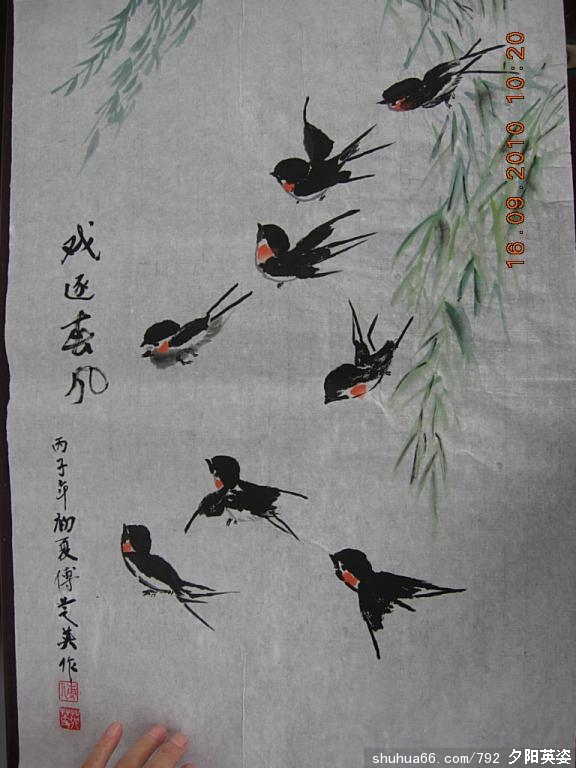 戏逐春风
丙子年初夏傅芝英作
16.09.2010 10:20
shuhua66.com/792 夕阳英姿